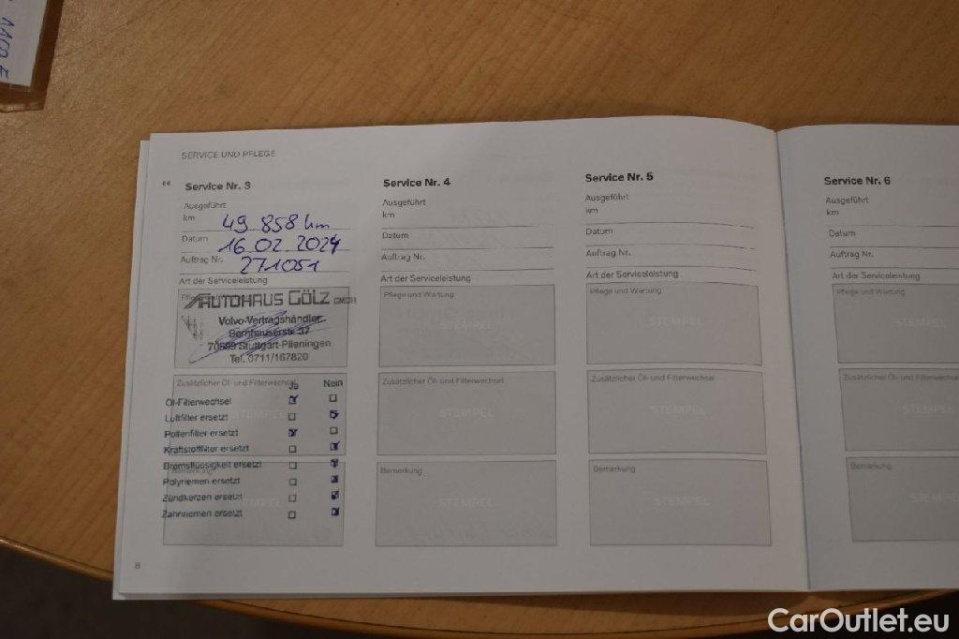 SERVICE UND PFLEGE
“
Service Nr. 3
Ausgeführt
km 49 858 km
Datum 16.02.2024
Auftrag Nr. 271051
Art der Serviceleistung
AUTOHAUS GÖLZ GMBH
Volvo-Vertragshändler
Bernhauserstr. 37
70599 Stuttgart-Plieningen
Tel. 0711/167820
Zusätzlicher Öl- und Filterwechsel
Ja Nein
Öl-Filterwechsel
Luftfilter ersetzt
Pollenfilter ersetzt
Kraftstofffilter ersetzt
Bremsflüssigkeit ersetzt
Polyriemen ersetzt
Zündkerzen ersetzt
Zahnriemen ersetzt
8
Service Nr. 4
Ausgeführt
km
Datum
Auftrag Nr.
Art der Serviceleistung
Pflege und Wartung
STEMPEL
Zusätzlicher Öl- und Filterwechsel
STEMPEL
Bemerkung
STEMPEL
Service Nr. 5
Ausgeführt
km
Datum
Auftrag Nr.
Art der Serviceleistung
Pflege und Wartung
STEMPEL
Zusätzlicher Öl- und Filterwechsel
STEMPEL
Bemerkung
STEMPEL
Service Nr. 6
Ausgeführt
km
Datum
Auftrag Nr.
Art der Serviceleistung
Pflege und Wartung
STEMPEL
Zusätzlicher Öl- und Filterwechsel
STEMPEL
Bemerkung
STEMPEL
CarOutlet.eu